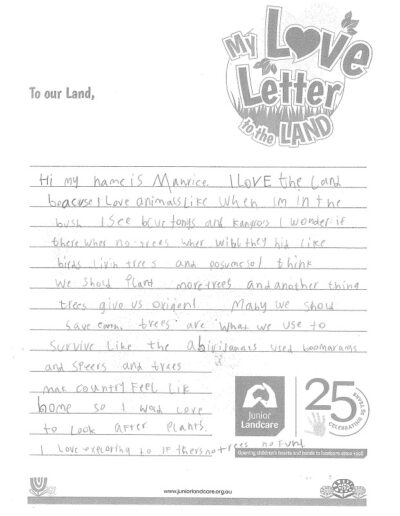 My Love Letter to the LAND
To our Land,
Hi my name is Manrice. I LOVE the Land
beacuse I Love animals Like when Im In the
bush I See blue tongs and kangroos I wonder if
there wher no trees wher will they hid like
birds livin trees and posums so I think
we should Plant more trees and another thing
trees give us oxigen! Maby we shoud
save earth. trees are what we use to
survive Like the abirigannals used boomarangs
and speers and trees
mak country Feel Lik
home so I woud Love
to Look after Plants.
I Love exploring to if thers no trees no Fun!
Junior Landcare
25 YEARS CELEBRATING
Opening children's hearts and minds to landcare since 1998
www.juniorlandcare.org.au